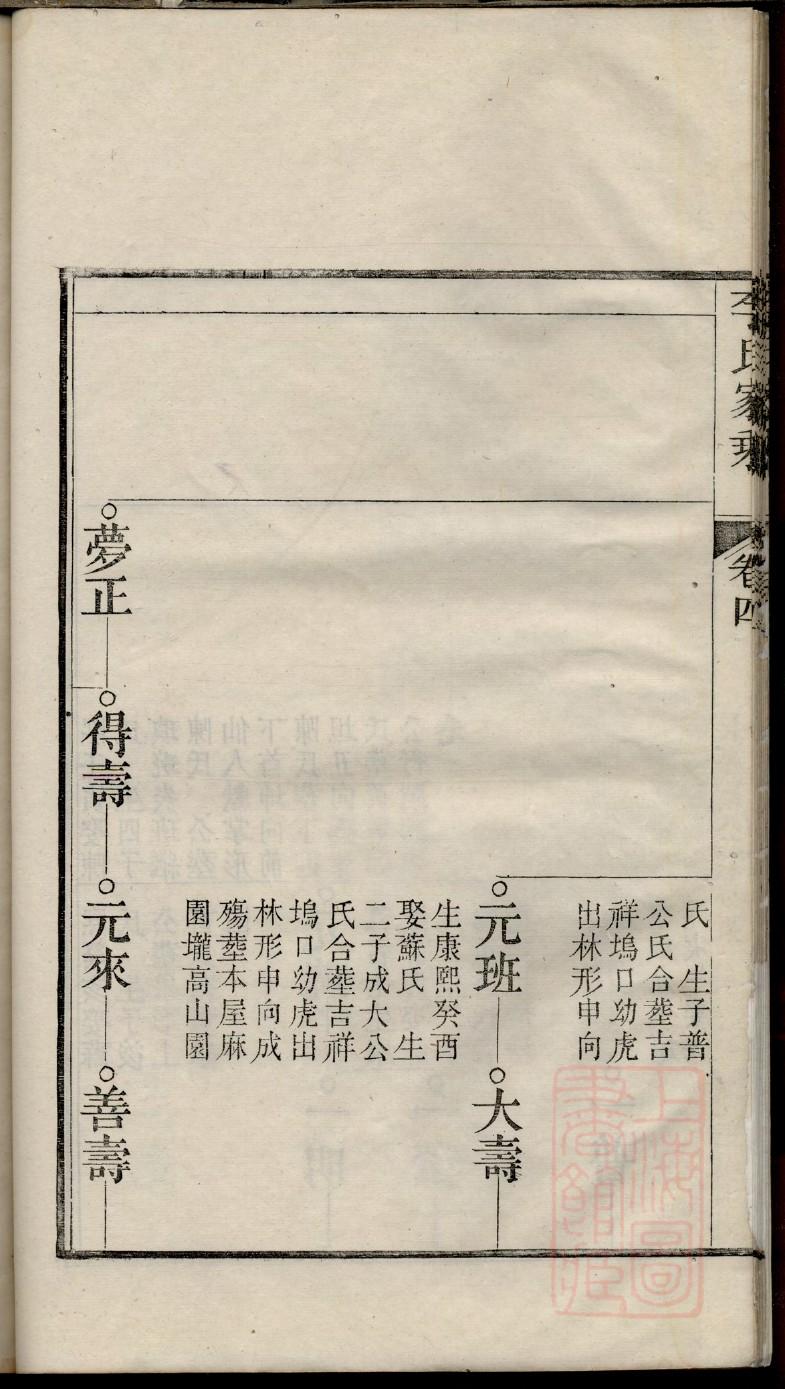 李氏家乘
卷四
氏　生子普
公氏合塟吉
祥塢口幼虎
出林形申向
元班
大壽
生康熙癸酉
娶蘇氏　生
二子成大公
氏合塟吉祥
塢口幼虎出
林形申向成
殤塟本屋麻
園壠高山園
夢正
得壽
元來
善壽
上海圖
書館藏